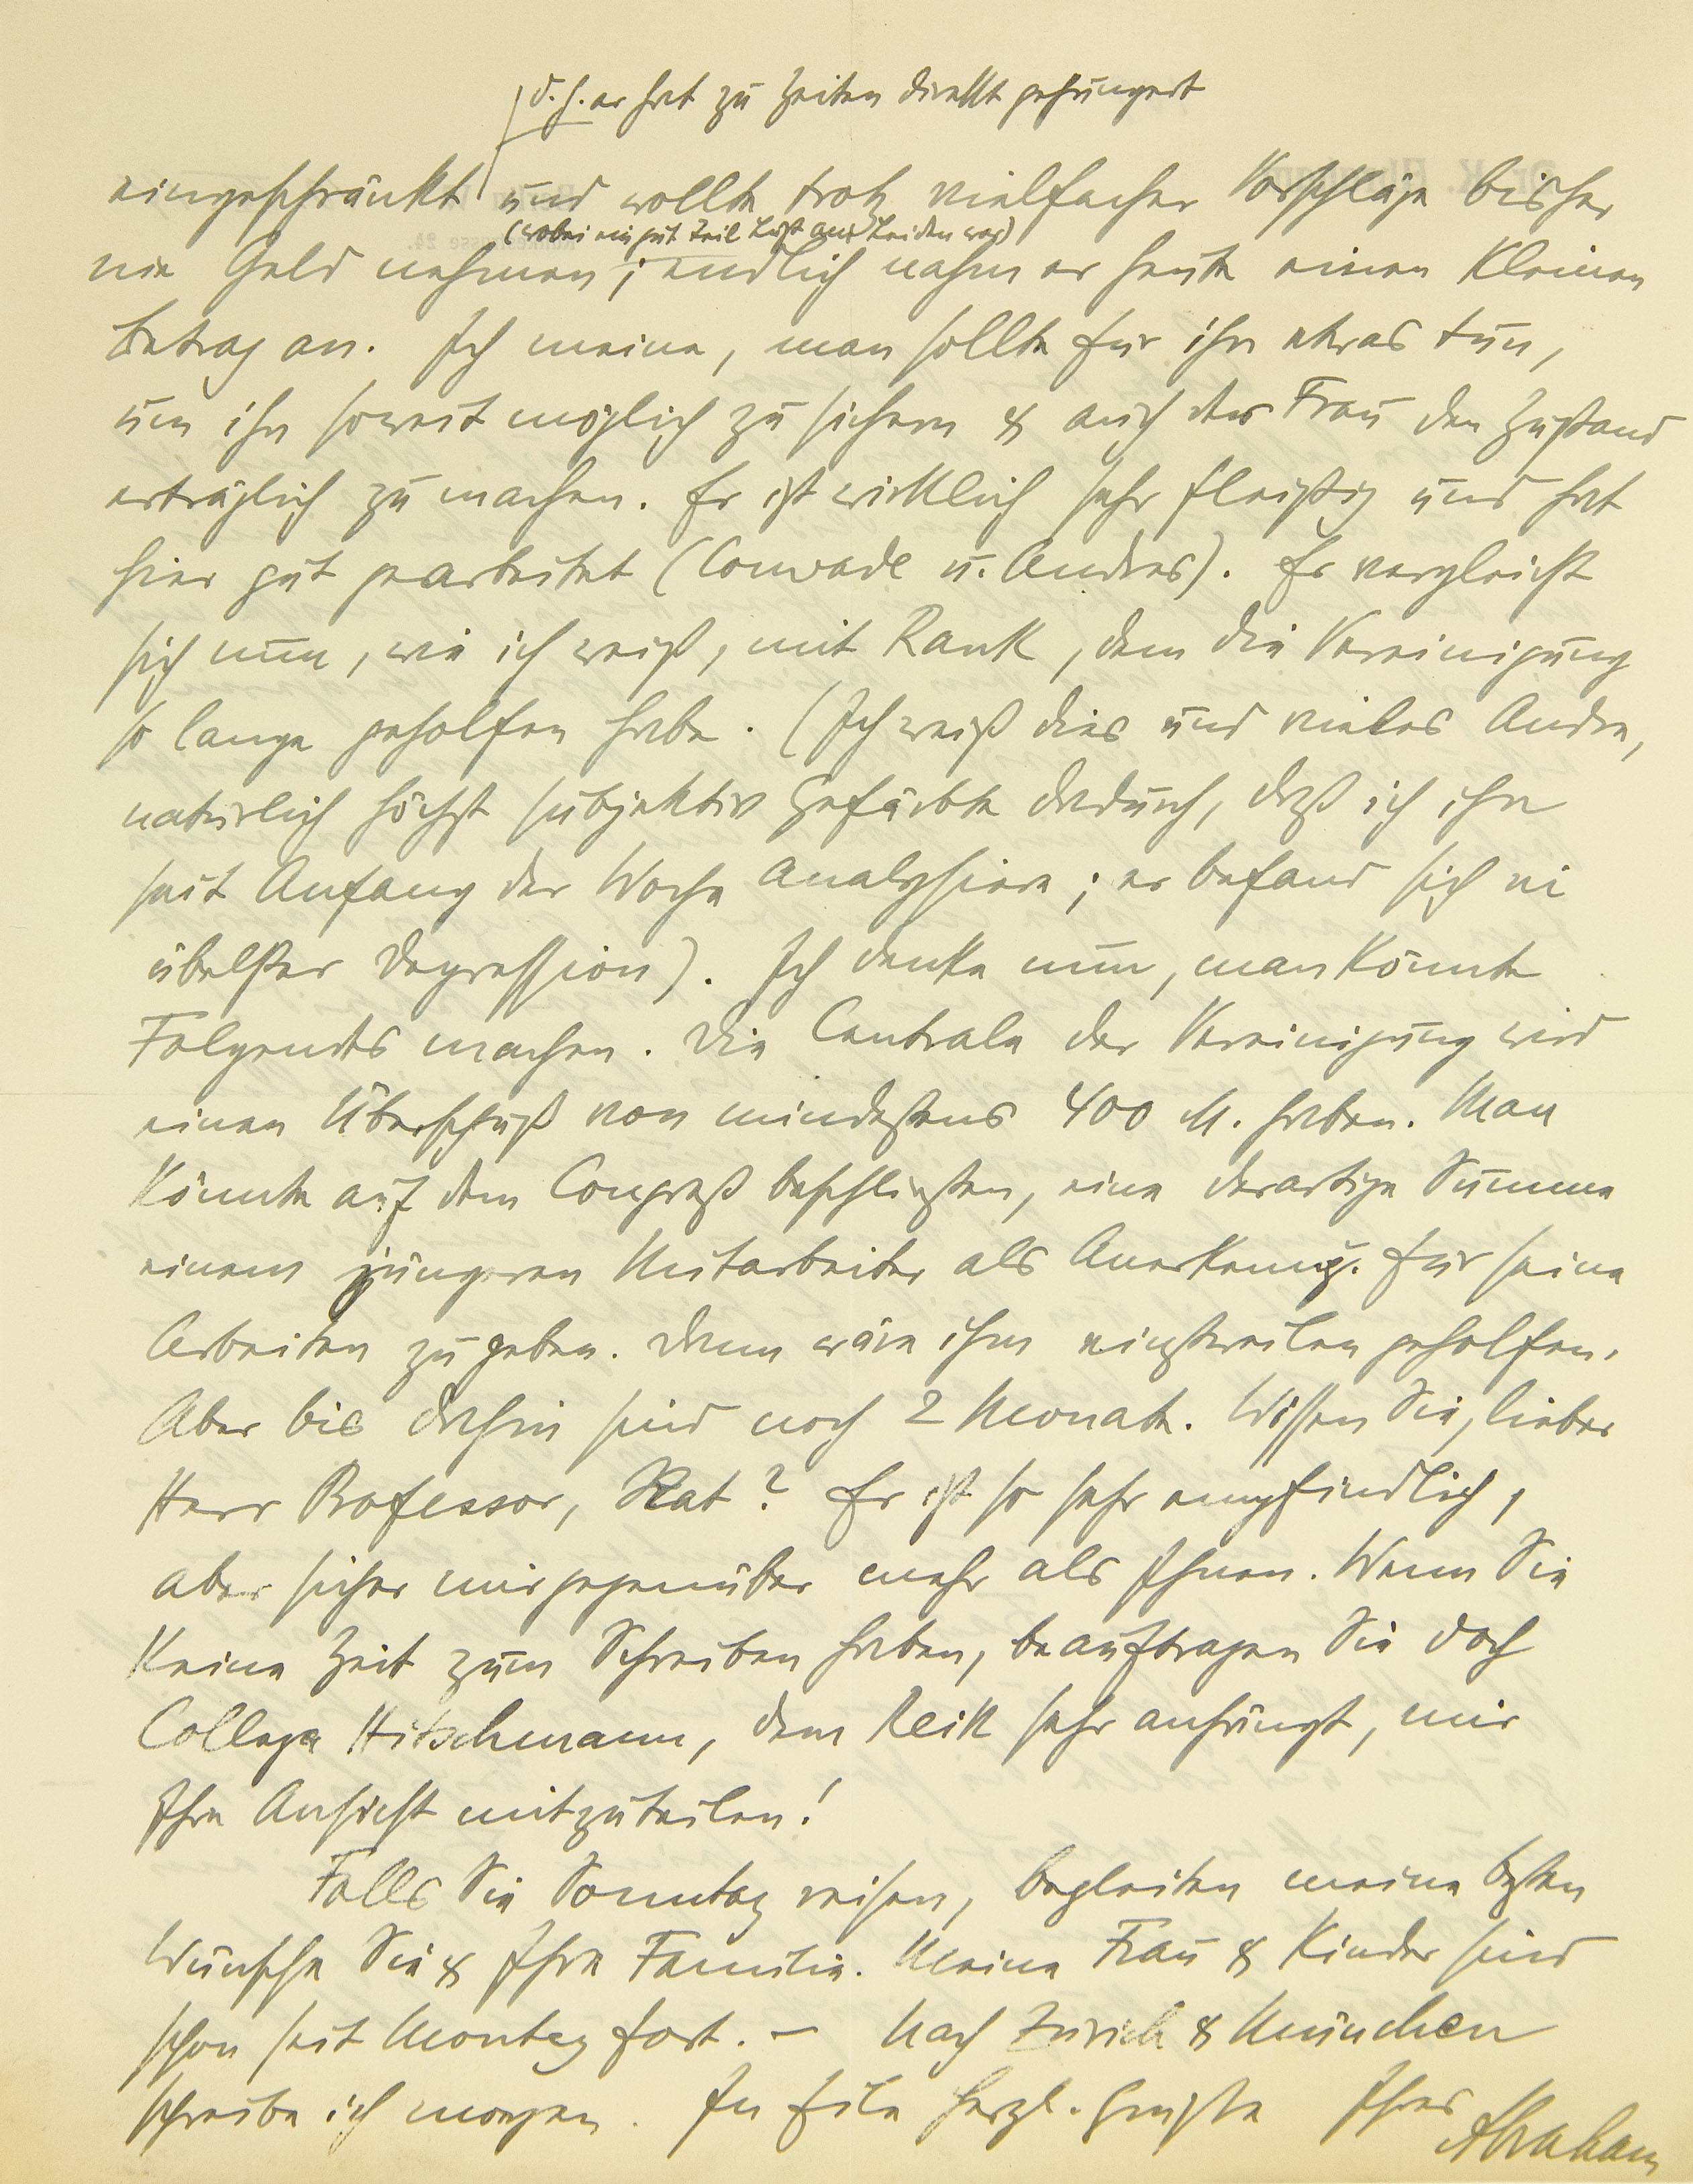 d. h. er hat zu Zeiten direkt gehungert
eingeschränkt und wollte trotz vielfacher Vorschläge bisher
(wobei ein gut Teil Lust am Leiden war)
nie Geld nehmen; endlich nahm er heute einen kleinen
Betrag an. Ich meine, man sollte für ihn etwas tun,
um ihn soweit möglich zu sichern & auch der Frau den Zustand
erträglich zu machen. Er ist wirklich sehr fleißig und hat
hier gut gearbeitet (Couvade u. Andres). Er vergleicht
sich nun, wie ich weiß, mit Rank, dem die Vereinigung
so lange geholfen habe. (Ich weiß dies und vieles Andre,
natürlich höchst subjektiv Gefärbte dadurch, daß ich ihn
seit Anfang der Woche analysiere; er befand sich in
übelster Depression). Ich denke nun, man könnte
Folgendes machen. Die Centrale der Vereinigung wird
einen Überschuß von mindestens 400 M. haben. Man
könnte auf dem Congreß beschließen, eine derartige Summe
einem jüngeren Mitarbeiter als Anerkenng. für seine
Arbeiten zu geben. Dann wäre ihm einstweilen geholfen.
Aber bis dahin sind noch 2 Monate. Wissen Sie, lieber
Herr Professor, Rat? Er ist so sehr empfindlich,
aber sicher mir gegenüber mehr als Ihnen. Wenn Sie
keine Zeit zum Schreiben haben, beauftragen Sie doch
College Hitschmann, dem Reik sehr anhängt, mir
Ihre Ansicht mitzuteilen!
Falls Sie Sonntag reisen, begleiten meine besten
Wünsche Sie & Ihre Familie. Meine Frau & Kinder sind
schon seit Montag fort. – Nach Zürich & München
schreibe ich morgen. In Eile herzl. Grüße Ihres Abraham